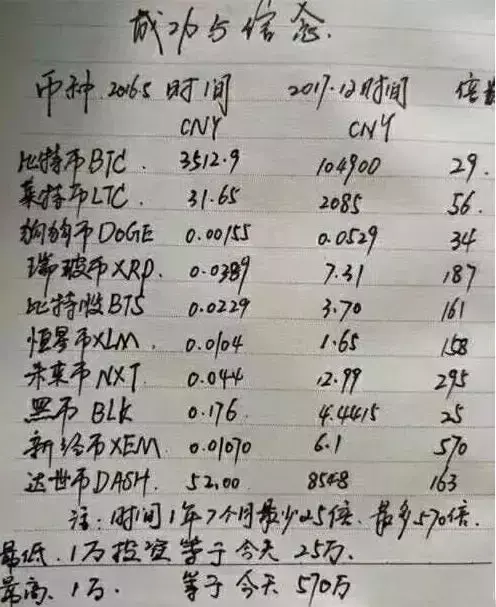 成功与信念
币种 2016.5 时间 2017.12时间 倍数
CNY CNY
比特币BTC. 3512.9 104900 29.
莱特币LTC. 31.65 2085 56.
狗狗币DOGE 0.00155 0.0529 34
瑞波币XRP. 0.0389 7.31 187
比特股BTS 0.0229 3.70 161
恒星币XLM. 0.0104 1.65 158
未来币NXT. 0.044 12.99 295
黑币 BLK 0.176. 4.4415 25
新经币XEM. 0.01070 6.1 570
达世币DASH. 52.00 8548 163
注:时间1年7个月最少25倍.最多570倍.
最低.1万投资等于今天25万.
最高.1万. 等于今天570万